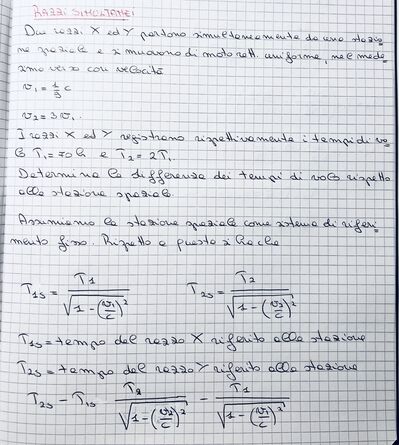 RAZZI SIMULTANEI
Due razzi X ed Y partono simultaneamente da una stazio-
ne spaziale e si muovono di moto rett. uniforme, nel mede-
simo verso con velocità
v₁ = 1/3 c
v₂ = 3v₁.
I razzi X ed Y registrano rispettivamente i tempi di vo-
lo T₁ = 70 h e T₂ = 2T₁.
Determina la differenza dei tempi di volo rispetto
alla stazione spaziale.
Assumiamo la stazione spaziale come sistema di riferi-
mento fisso. Rispetto a questo si ha che
T₁ₛ = T₁ / √(1 - (v₁/c)²)    T₂ₛ = T₂ / √(1 - (v₂/c)²)
T₁ₛ = tempo del razzo X riferito alla stazione
T₂ₛ = tempo del razzo Y riferito alla stazione
T₂ₛ - T₁ₛ T₂ / √(1 - (v₂/c)²) - T₁ / √(1 - (v₁/c)²)